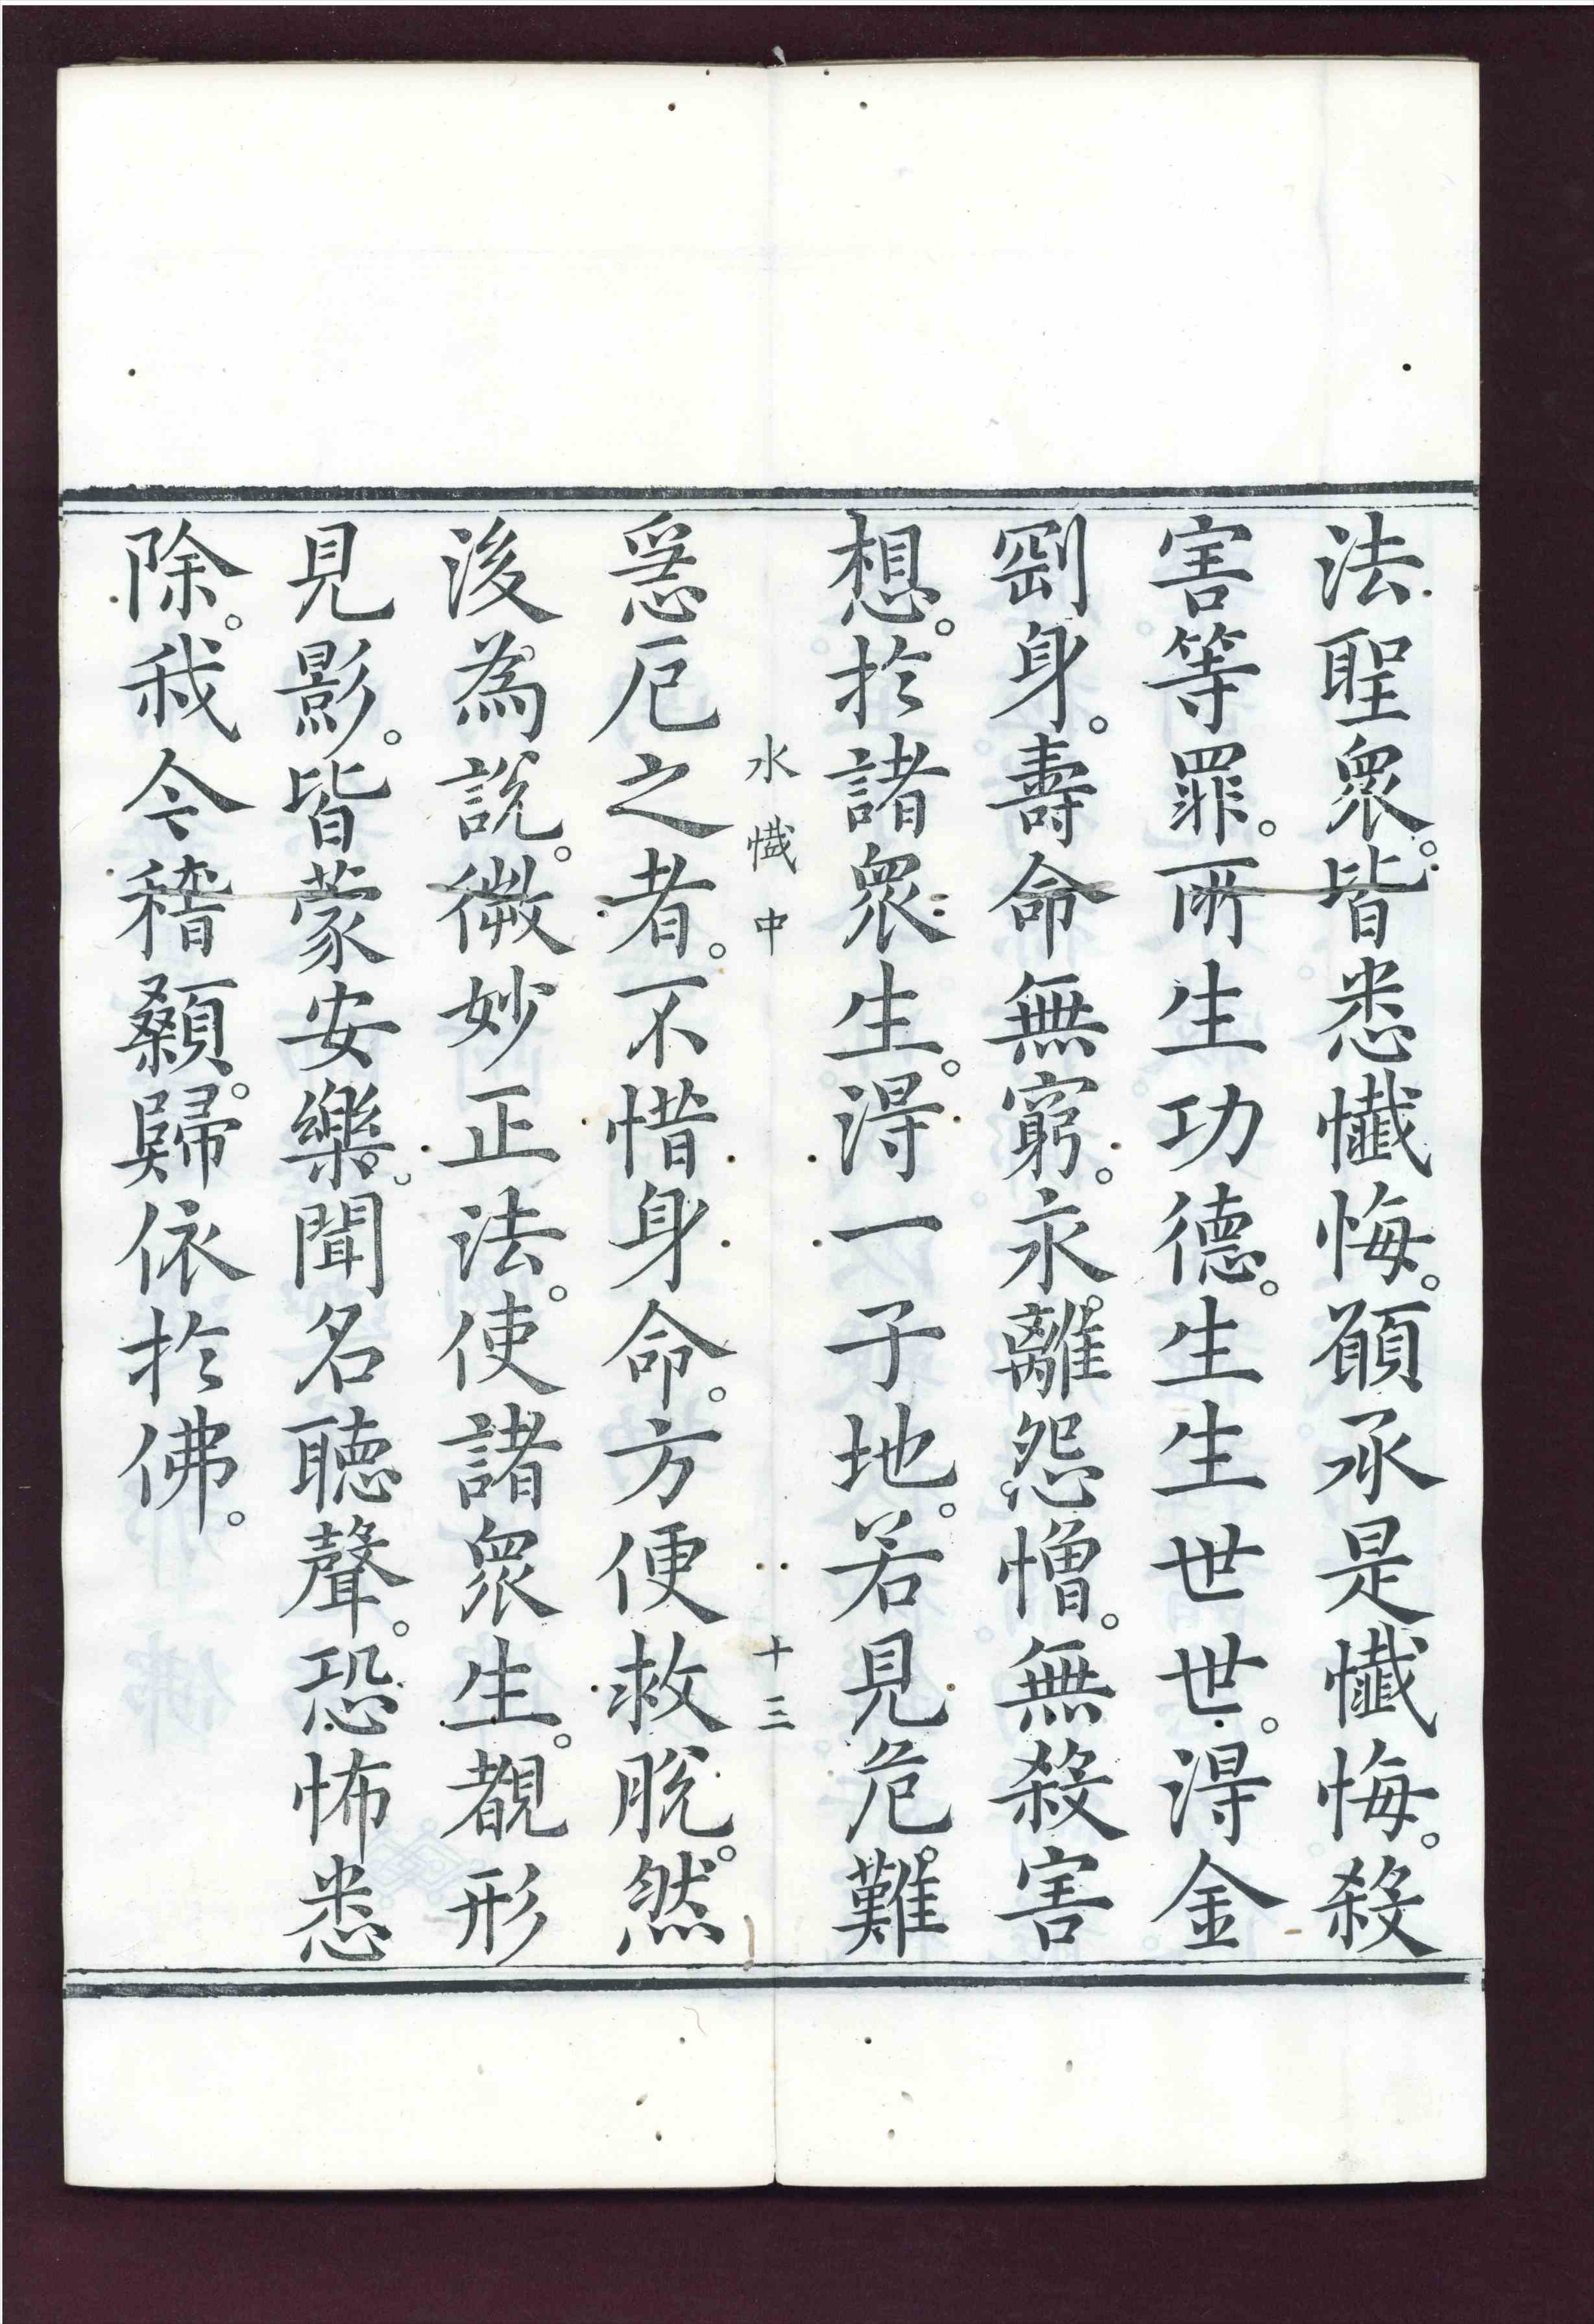 法聖衆。皆悉懺悔。願承是懺悔。殺
害等罪。所生功德。生生世世。得金
剛身。壽命無窮。永離怨憎。無殺害
想。於諸衆生。得一子地。若見危難
水懺中 十三
急厄之者。不惜身命。方便救脫。然
後為說。微妙正法。使諸衆生。覩形
見影。皆蒙安樂。聞名聽聲。恐怖悉
除。我今稽顙。歸依於佛。